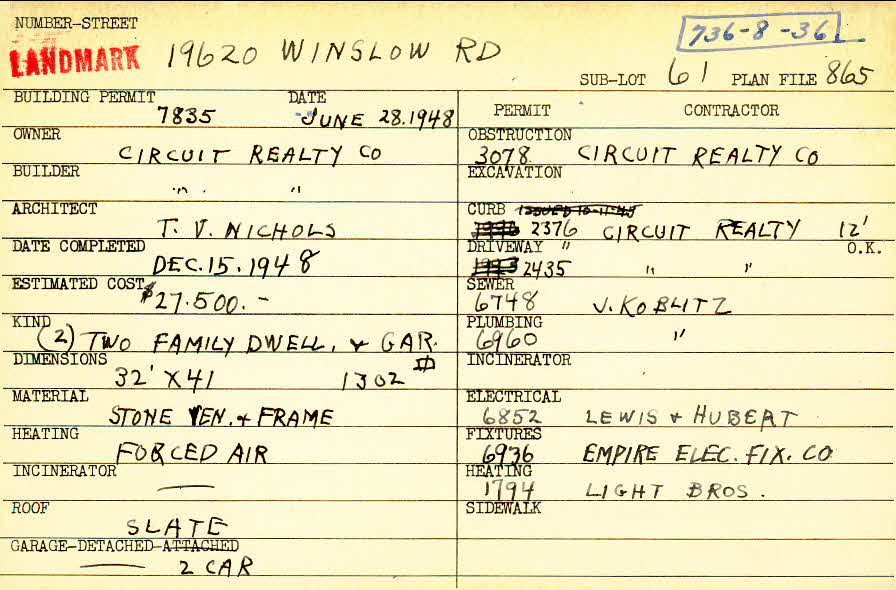 NUMBER-STREET
LANDMARK 19620 WINSLOW RD 736-8-36
SUB-LOT 61 PLAN FILE 865
BUILDING PERMIT DATE
7835 JUNE 28.1948
OWNER
CIRCUIT REALTY CO
BUILDER
" "
ARCHITECT
T. V. NICHOLS
DATE COMPLETED
DEC. 15. 1948
ESTIMATED COST
$27.500.-
KIND
(2) TWO FAMILY DWELL. & GAR.
DIMENSIONS
32' X 41 1302 #
MATERIAL
STONE VEN. & FRAME
HEATING
FORCED AIR
INCINERATOR
—
ROOF
SLATE
GARAGE-DETACHED-ATTACHED
— 2 CAR
PERMIT CONTRACTOR
OBSTRUCTION
3078 CIRCUIT REALTY CO
EXCAVATION
CURB ISSUED 10-11-48
2376 CIRCUIT REALTY 12'
DRIVEWAY " O.K.
2435 " "
SEWER
6748 V. KOBLITZ
PLUMBING
6960 "
INCINERATOR
ELECTRICAL
6852 LEWIS & HUBERT
FIXTURES
6936 EMPIRE ELEC. FIX. CO
HEATING
1794 LIGHT BROS.
SIDEWALK